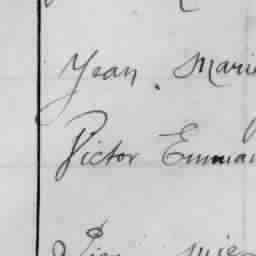 Jean. Marie
Victor Emman